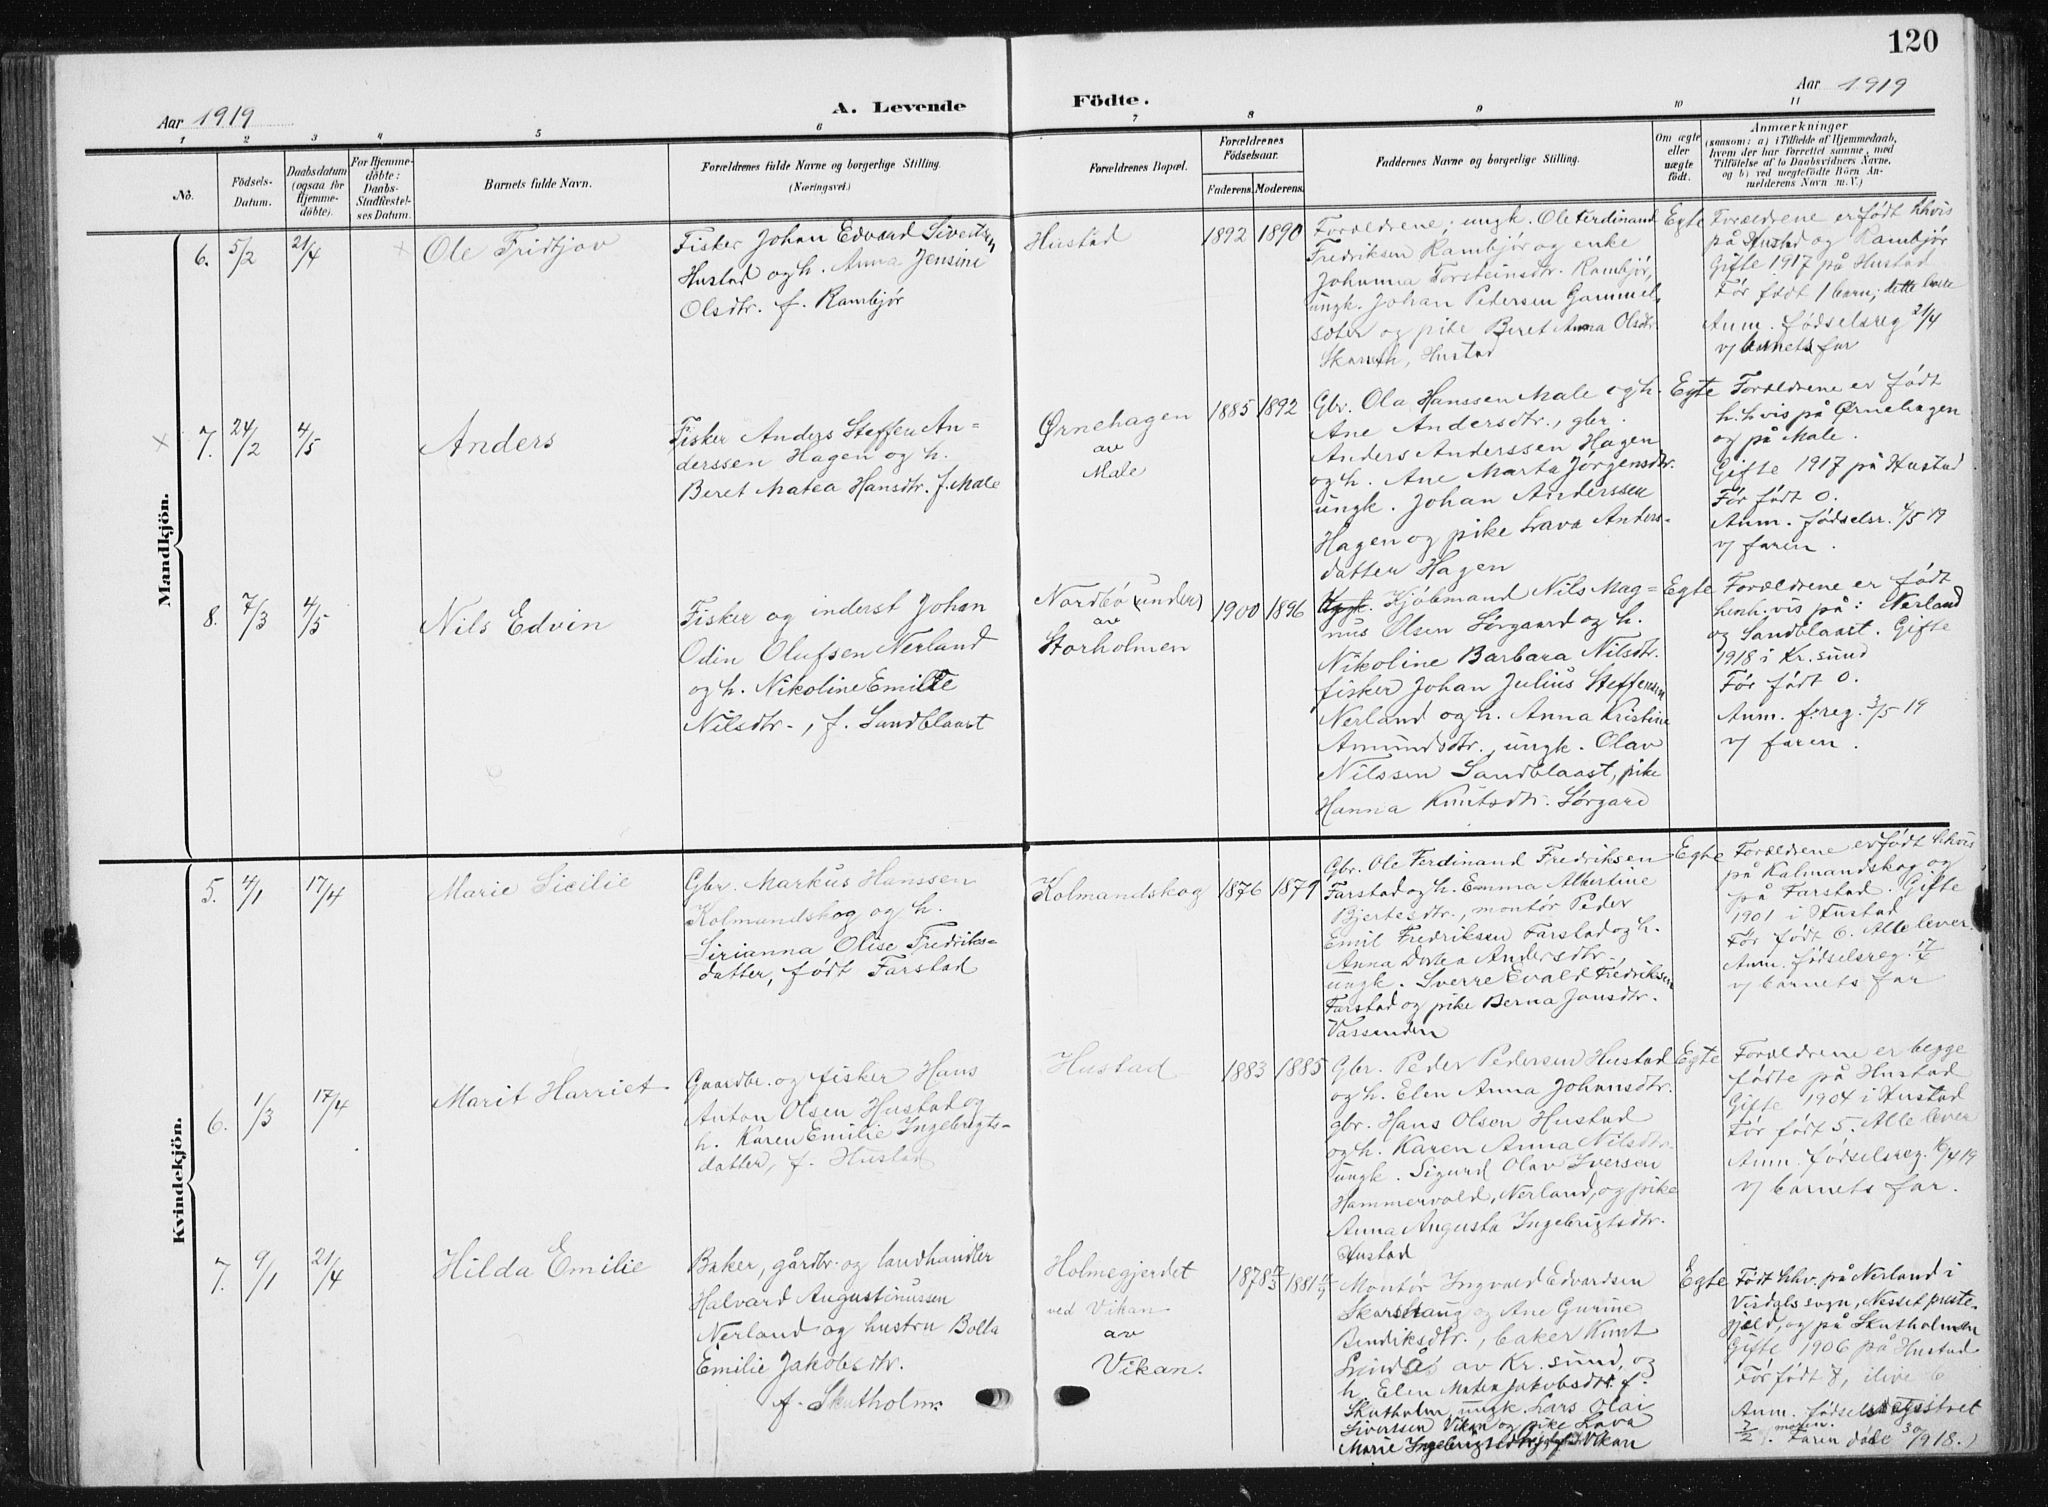 120
Aar 1919
A. Levende Födte.
Aar 1919
1 2 3 4 5 6 7 8 9 10 11
No.
Födsels-
Datum.
Daabsdatum
(ogsaa for
Hjemme-
døbte).
For Hjemme-
döbte:
Daabs-
Stadfæstel-
ses Datum.
Barnets fulde Navn.
Forældrenes fulde Navne og borgerlige Stilling.
(Næringsvei.)
Forældrenes Bopæl.
Forældrenes
Födselsaar.
Faderens. Moderens.
Faddernes Navne og borgerlige Stilling.
Om ægte
eller
uægte
født.
Anmærkninger
(saasom: a) i Tilfælde af Hjemmedaab,
hvem der har forrettet samme, med
Tilföielse af to Daabsvidners Navne,
og b) ved uægtefødte Börn An-
melderens Navn m. V.)
Mandkjön.
6. 5/2 21/4
Ole Fridtjov
Fisker Johan Edvard Sivertsen
Hustad og h. Anna Jensine
Olsdtr. f. Rambjør
Hustad
1892 1890
Forældrene; ungk. Ole Ferdinand
Fredriksen Rambjør og enke
Johanna Torsteinsdtr. Rambjør,
ungk. Johan Pedersen Gammel-
sæter og pike Beret Anna Olsdtr.
Hustad
Egte
Forældrene er født hhvis
på Hustad og Rambjør
Gifte 1917 på Hustad
Før født 1 barn; dette lever
Anm. fødselsreg 21/4
v/ barnets far
7. 24/2 4/5
Anders
Fisker Anders Steffen An-
derssen Hagen og h.
Beret Matea Hansdtr. f. Male
Ørnehagen
av
Male
1885 1892
Gbr. Ola Hanssen Male og h.
Ane Andersdtr., gbr.
Anders Anderssen Hagen
og h. Ane Marta Jørgensdtr.
ungk. Johan Anderssen
Hagen og pike Lava Anders-
datter Hagen
Egte
Forældrene er født
h.hvis på Ørnehagen
og på Male.
Gifte 1917 på Hustad
Før født 0.
Anm. fødselsr. 4/5 19
v/ faren.
8. 7/3 4/5
Nils Edvin
Fisker og inderst Johan
Odin Olufsen Nerland
og h. Nikoline Emilie
Nilsdtr., f. Sandblaast
Nordbø (under)
av
Storholmen
1900 1896
Kjøbmand Nils Mag-
nus Olsen Sørgaard og h.
Nikoline Barbara Nilsdtr.
fisker Johan Julius Steffensen
Nerland og h. Anna Kristine
Amundsdtr., ungk. Olav
Nilssen Sandblaast, pike
Hanna Knutsdtr. Sørgard
Egte
Forældrene er født
henh.vis på: Nerland
og Sandblaast. Gifte
1918 i Kr.sund
Før født 0.
Anm. f.reg. 3/5 19
v/ faren.
Kvindekjön.
5. 4/1 17/4
Marie Sicilie
Gbr. Markus Hanssen
Kolmandskog og h.
Sirianna Olise Fredriks-
datter, født Farstad
Kolmandskog
1876 1879
Gbr. Ole Ferdinand Fredriksen
Farstad og h. Emma Albertine
Bjertesdtr., montør Peder
Emil Fredriksen Farstad og h.
Anna Dortea Andersdtr.
ungk. Sverre Evald Fredriksen
Farstad og pike Berna Jonsdtr.
Vassenden
Egte
Forældrene er født hhvis
på Kalmandskog og
på Farstad. Gifte
1901 i Hustad
Før født 6. Alle lever.
Anm. fødselsreg. 17/4
v/ barnets far
6. 1/3 17/4
Marit Harriet
Gaardbr. og fisker Hans
Anton Olsen Hustad og
h. Karen Emilie Ingebrigts-
datter, f. Hustad
Hustad
1883 1885
Gbr. Peder Pedersen Hustad
og h. Elen Anna Johansdtr.
gbr. Hans Olsen Hustad
og h. Karen Anna Nilsdtr.
ungk. Sigurd Olav Iversen
Hammervold, Nerland, og pike
Anna Augusta Ingebrigtsdtr.
Hustad
Egte
Forældrene er begge
fødte på Hustad
Gifte 1904 i Hustad
Før født 5. Alle lever
Anm. fødselsreg. 16/4 19
v/ barnets far.
7. 9/1 21/4
Hilda Emilie
Baker, gårdbr. og landhandler
Halvard Augustinussen
Nerland og hustru Bolla
Emilie Jakobsdtr.
f. Skutholm.
Holmegjerdet
ved Vikan
av
Vikan.
1878 1881
Montør Ingvald Edvardsen
Skarshaug og Ane Gurine
Bendriksdtr., baker Knut
av Kr.sund, og
h. Elen Matea Jakobsdtr. f.
Skutholm, ungk Lars Olai
Siverssen Vikan og pike Lava
Marie Ingebrigtsdtr. Vikan
Egte
Født hhv. på Nerland i
Visdals sogn, Nesset preste-
gjeld, og på Skutholmen
Gifte 1906 på Hustad
Før født 7, ilive 6
Anm. fødselsregistret
7/2 v. moren.
Faren døde 1918.)